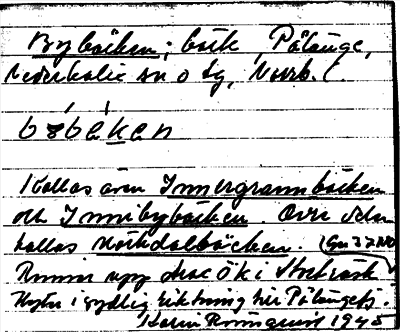 Bybäcken; bäck, Pålänge,
Nederkalix sn o tg, Norrb. l.
bȣbækæn
Kallas även Innergrannbäcken
och Innibybäcken. Övre delen
kallas Mörkdalbäcken. (Gu 37 NO
Rinner upp ök i
flyter i sydlig riktning till Pålängefj.
Karin Rönnquist 1945